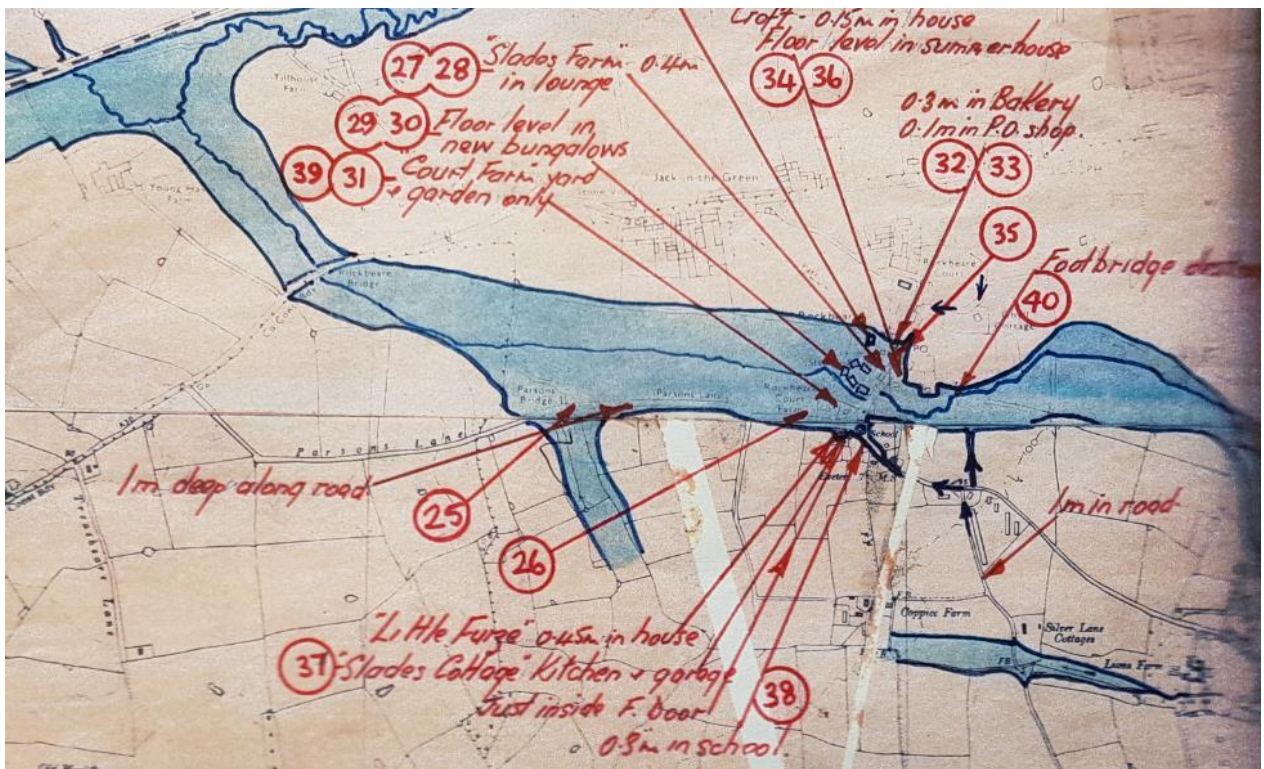 Croft - 0.15m in house
Floor level in summerhouse
34 36
27 28 "Slades Farm" 0.4m
in lounge
29 30 Floor level in
new bungalows
39 31 "Court Farm yard
+ garden only
0.3m in Bakery
0.1m in P.O. shop.
32 33
35
Footbridge
40
Jack in the Green
Rockbeare
Court
Cottage
Rockbeare
Bridge
Rockbeare
PO
Parsons
Bridge
Parsons Lane
Rockbeare
Court
Farm
School
Parsons Lane
1m deep along road
25
26
1m in road
Trickeny Lane
Coppice Farm
Silver Lane
Cottages
FB
Luma Farm
"Little Furze" 0.45m in house
37 "Slades Cottage" Kitchen + garage
Just inside F. door
38
0.3m in school.